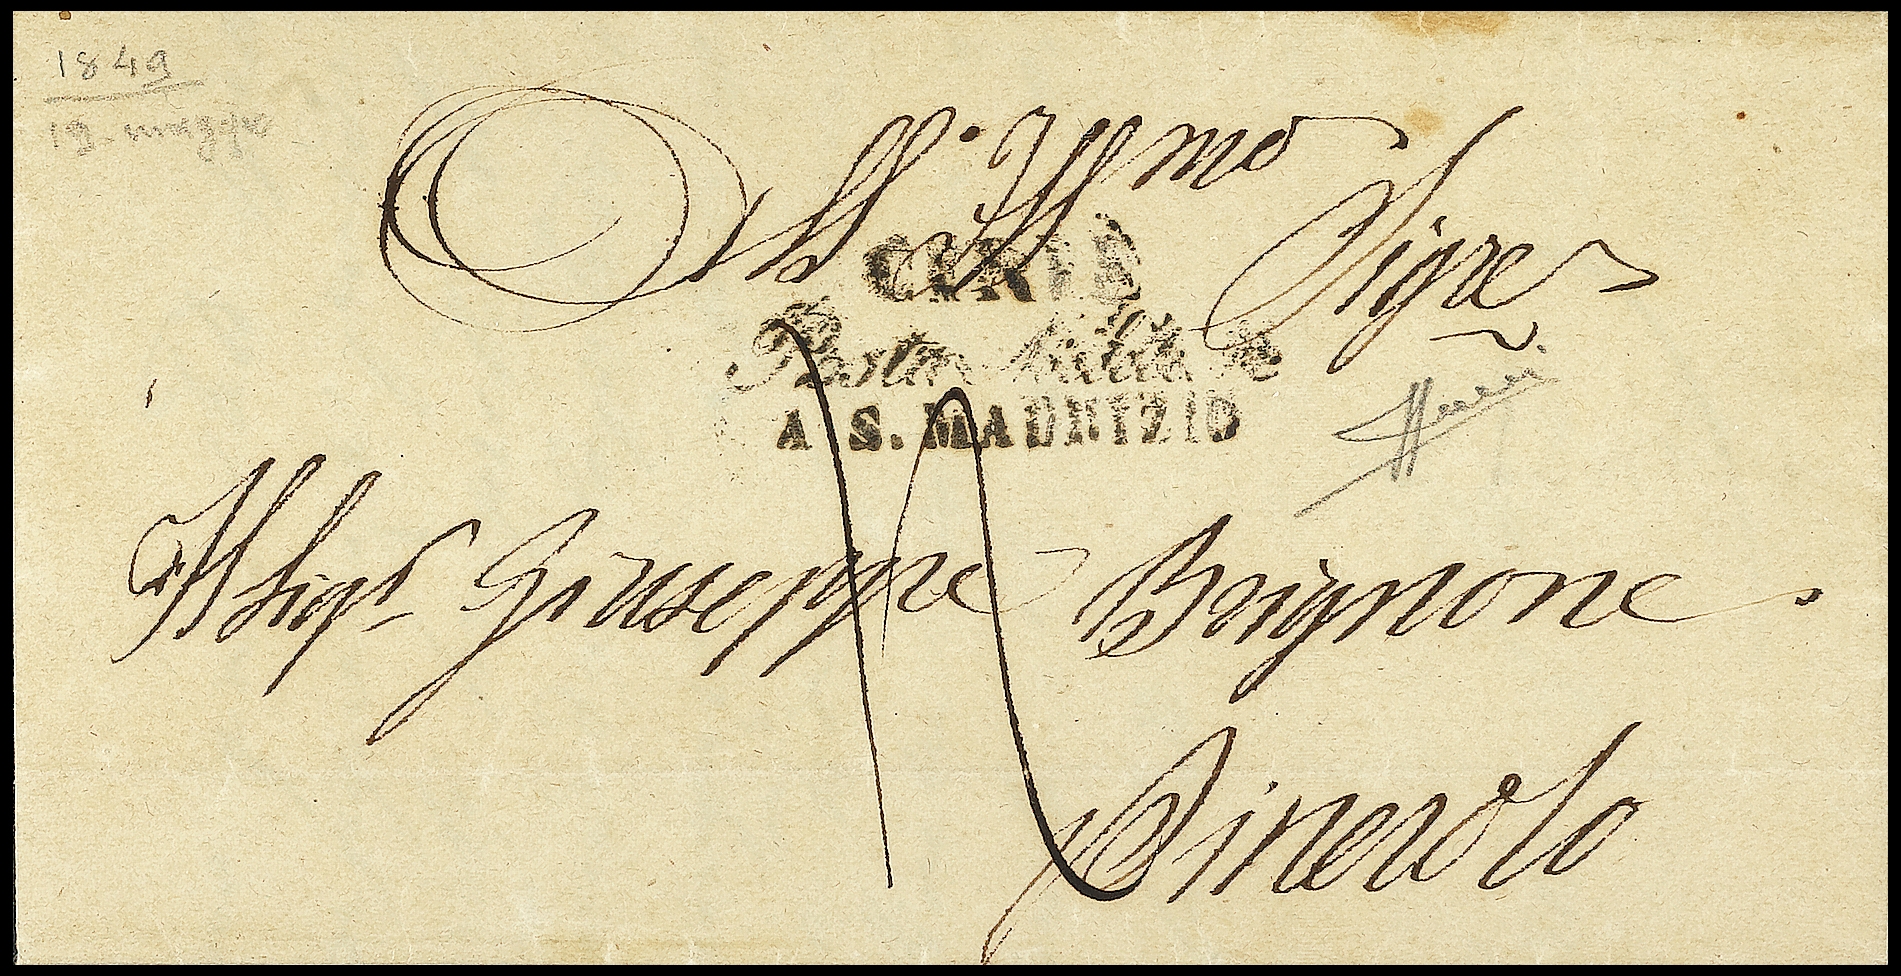 1849
19. maggio
All'. Ill.mo Sigre
CIRIÈ
Posta Milit.e
A S. MAURIZIO
Il Sigr Giuseppe Brignone.
Pinerolo